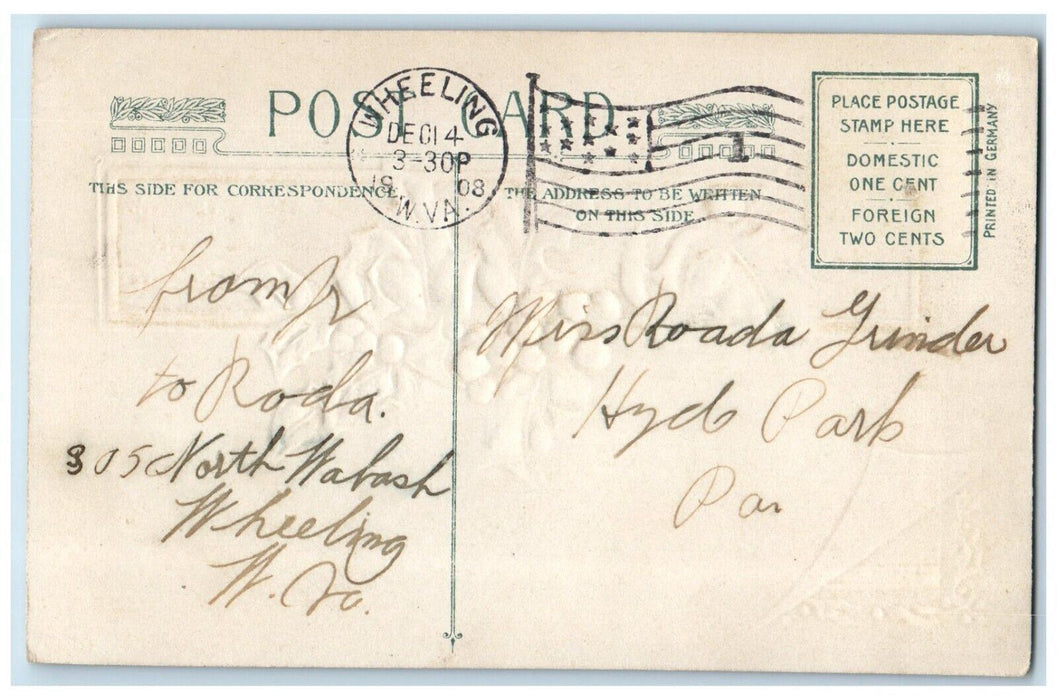 POST CARD
WHEELING
DEC 14
3-30P
19 08
W.VA.
1
PLACE POSTAGE
STAMP HERE
DOMESTIC
ONE CENT
FOREIGN
TWO CENTS
PRINTED IN GERMANY
THIS SIDE FOR CORRESPONDENCE
THE ADDRESS TO BE WRITTEN
ON THIS SIDE
from
to Roda.
305 North Wabash
Wheeling
W. Va.
Miss Roada Grinder
Hyde Park
Pa